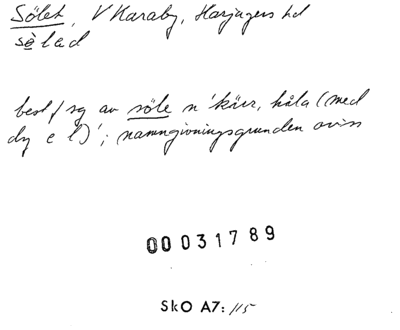 Sölet, V Karaby, Harjagers hd
sèlad
best f sg av söle n 'kärr, håla (med
dy e l)'; namngivningsgrunden oviss
00 031789
SkO A7: 115